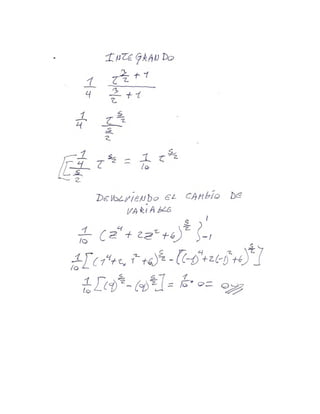 INTEGRANDO
1/4 τ^(3/2 + 1) / (3/2 + 1)
1/4 τ^(5/2) / (5/2)
[ (1/4)/(5/2) τ^(5/2) = 1/10 τ^(5/2)
DEVOLVIENDO EL CAMBIO DE
VARIABLE
1/10 (z^4 + 2z^2 + 6)^(5/2) }^1_-1
1/10 [ (1^4 + 2·1^2 + 6)^(5/2) - ((-1)^4 + 2(-1)^2 + 6)^(5/2) ]
1/10 [ (9)^(5/2) - (9)^(5/2) ] = 1/10 · 0 = 0